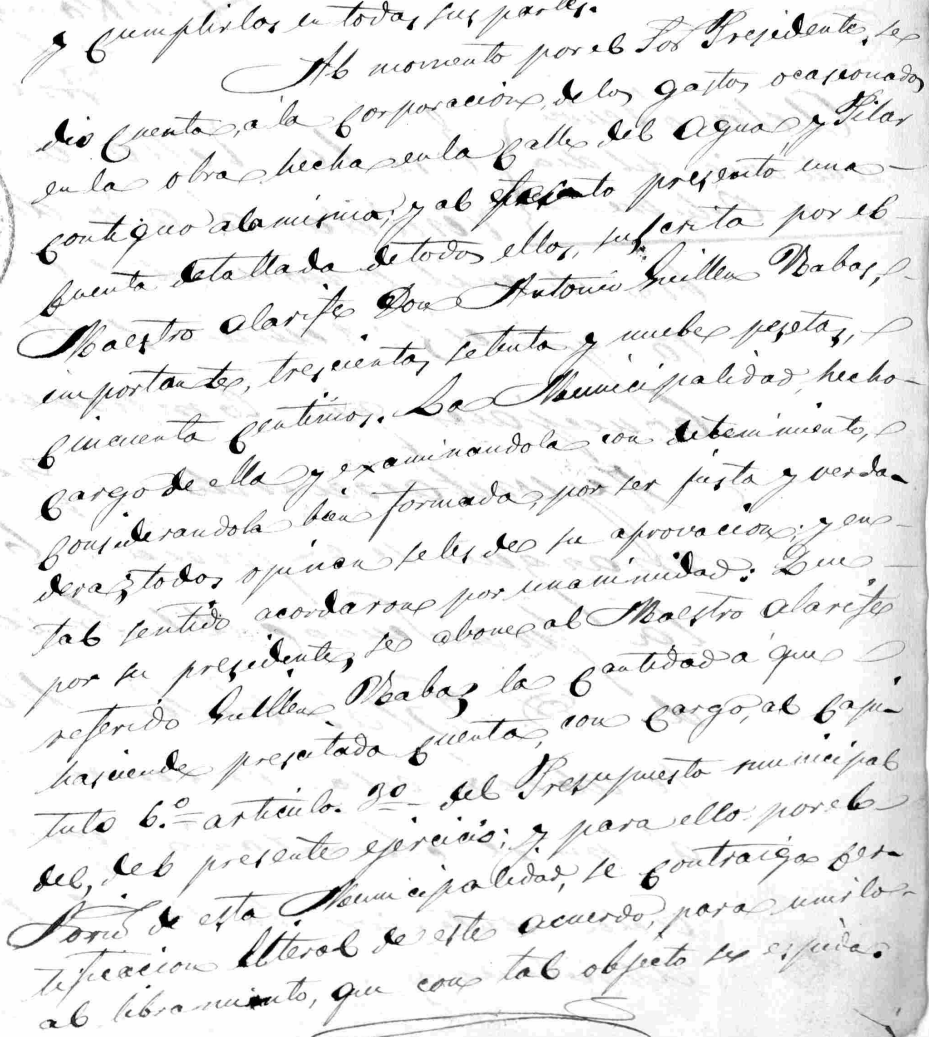 y cumplirlas en todas sus partes.
Al momento por el Sor Presidente, se
dió cuenta, á la corporacion, de los gastos ocasionados
en la obra hecha en la calle del Agua, y Pilar
contiguo a la misma; y al efecto presento una
cuenta detallada de todos ellos, suscrita por el
Maestro alarife Don Antonio Guillen Rabas,
importante, trescientas setenta y nuebe pesetas,
cincuenta centimos. La Municipalidad, hecho
cargo de ella y examinandola con detenimiento,
considerandola bien formada, por ser justa y verda-
dera; todos opinan se les de su aprovacion; y en
tal sentido acordaron por unanimidad: Que
por su presidente, se abone al Maestro alarife
referido Guillen Rabas, la cantidad á que
hasciende precitada cuenta, con cargo, al capi-
tulo 6.º articulo. 3º del Presupuesto municipal
del, del presente ejercicio; y para ello por el
Sorio de esta Municipalidad, se contraiga cer-
tificacion literal de este acuerdo, para unirlo
al libramiento, que con tal objecto se espida.